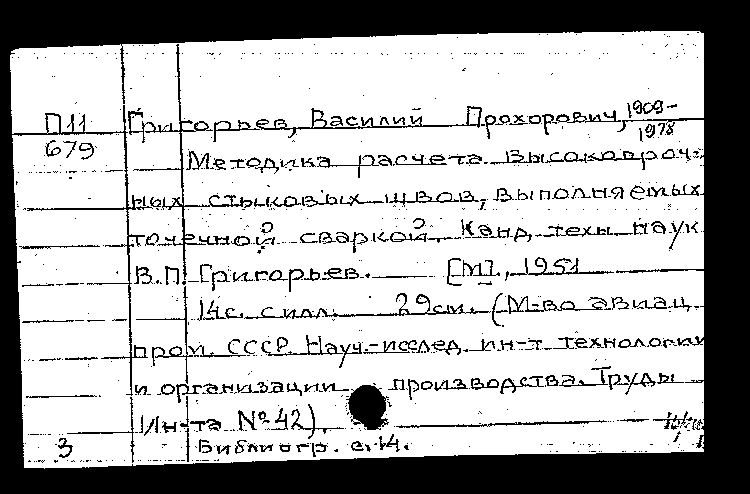 П11 Григорьев, Василий Прохорович, 1909-
679 1978
Методика расчета высокопроч-
ных стыковых швов, выполняемых
точечной сваркой. Канд. техн. наук
В.П. Григорьев. [М]., 1951
14с. с илл. 29см. (М-во авиац.
пром. СССР. Науч.-исслед. ин-т технологии
и организации производства. Труды
Ин-та №42).
3 Библиогр. с.14.